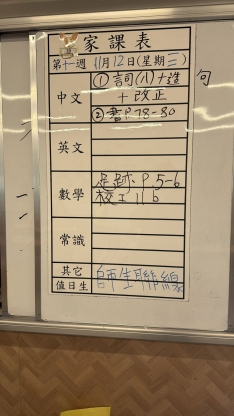 家課表
第十一週 11月12日(星期三)
中文
① 言詞(八)+造句
+改正
② 書P.78-80
英文
數學
足跡:P.5-6
校工11b
常識
其它
師生聯線
值日生